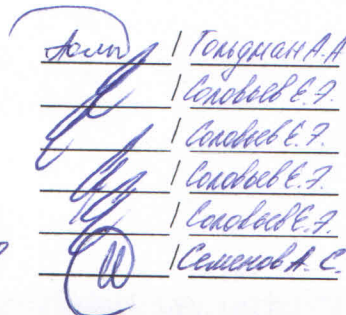 / Гольдман А.А
/ Соловьев Е.Э.
/ Соловьев Е.Э.
/ Соловьев Е.Э.
/ Соловьев Е.Э.
/ Семенов А.С.